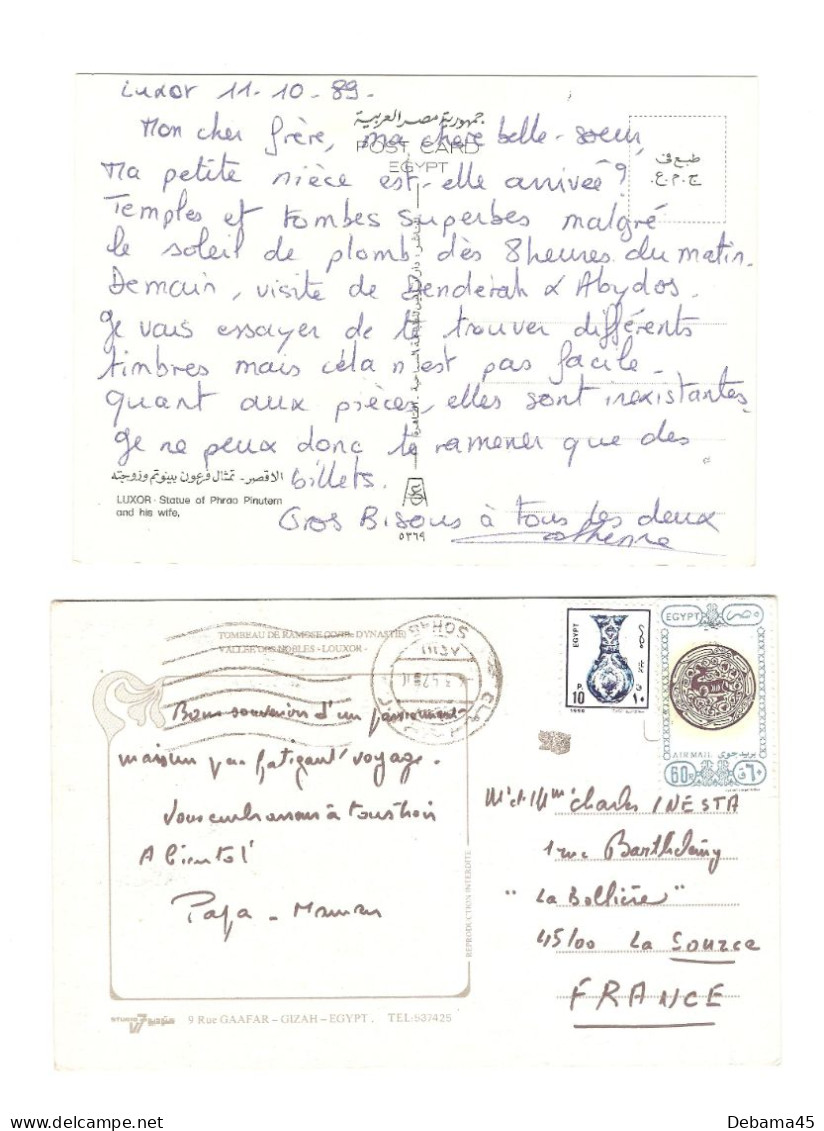 Luxor 11-10-89-
جمهورية مصر العربية
POST CARD
EGYPT
طبع في
ج.م.ع.
Mon cher frère, ma chère belle-soeur,
Ma petite nièce est-elle arrivée?
Temples et tombes superbes malgré
le soleil de plomb dès 8heures du matin.
Demain, visite de Denderah & Abydos.
Je vais essayer de te trouver différents
timbres mais cela n'est pas facile.
Quant aux pièces, elles sont inexistantes.
Je ne peux donc te ramener que des
billets.
الاقصر - تمثال فرعون بينوتم وزوجته
LUXOR: Statue of Phrao Pinutem
and his wife,
Gros Bisous à tous les deux
٥٣٦٩
TOMBEAU DE RAMOSE DYNASTIE)
VALLEE DES NOBLES - LOUXOR -
EGYPT
مصر
P.
10
١٠
1990
EGYPT مصر
AIR MAIL بريد جوى
60 ٦٠
Bons souvenirs d'un passionnant
mais un peu fatigant voyage.
Vous embrassons à tous trois
A bientôt
Papa - Maman
Mr et Mme Charles INESTA
1 rue Barthélémy
"La Bollière"
45100 La Source
FRANCE
REPRODUCTION INTERDITE
STUDIO 7 ستوديو
9 Rue GAAFAR - GIZAH - EGYPT. TEL:537425
Debama45